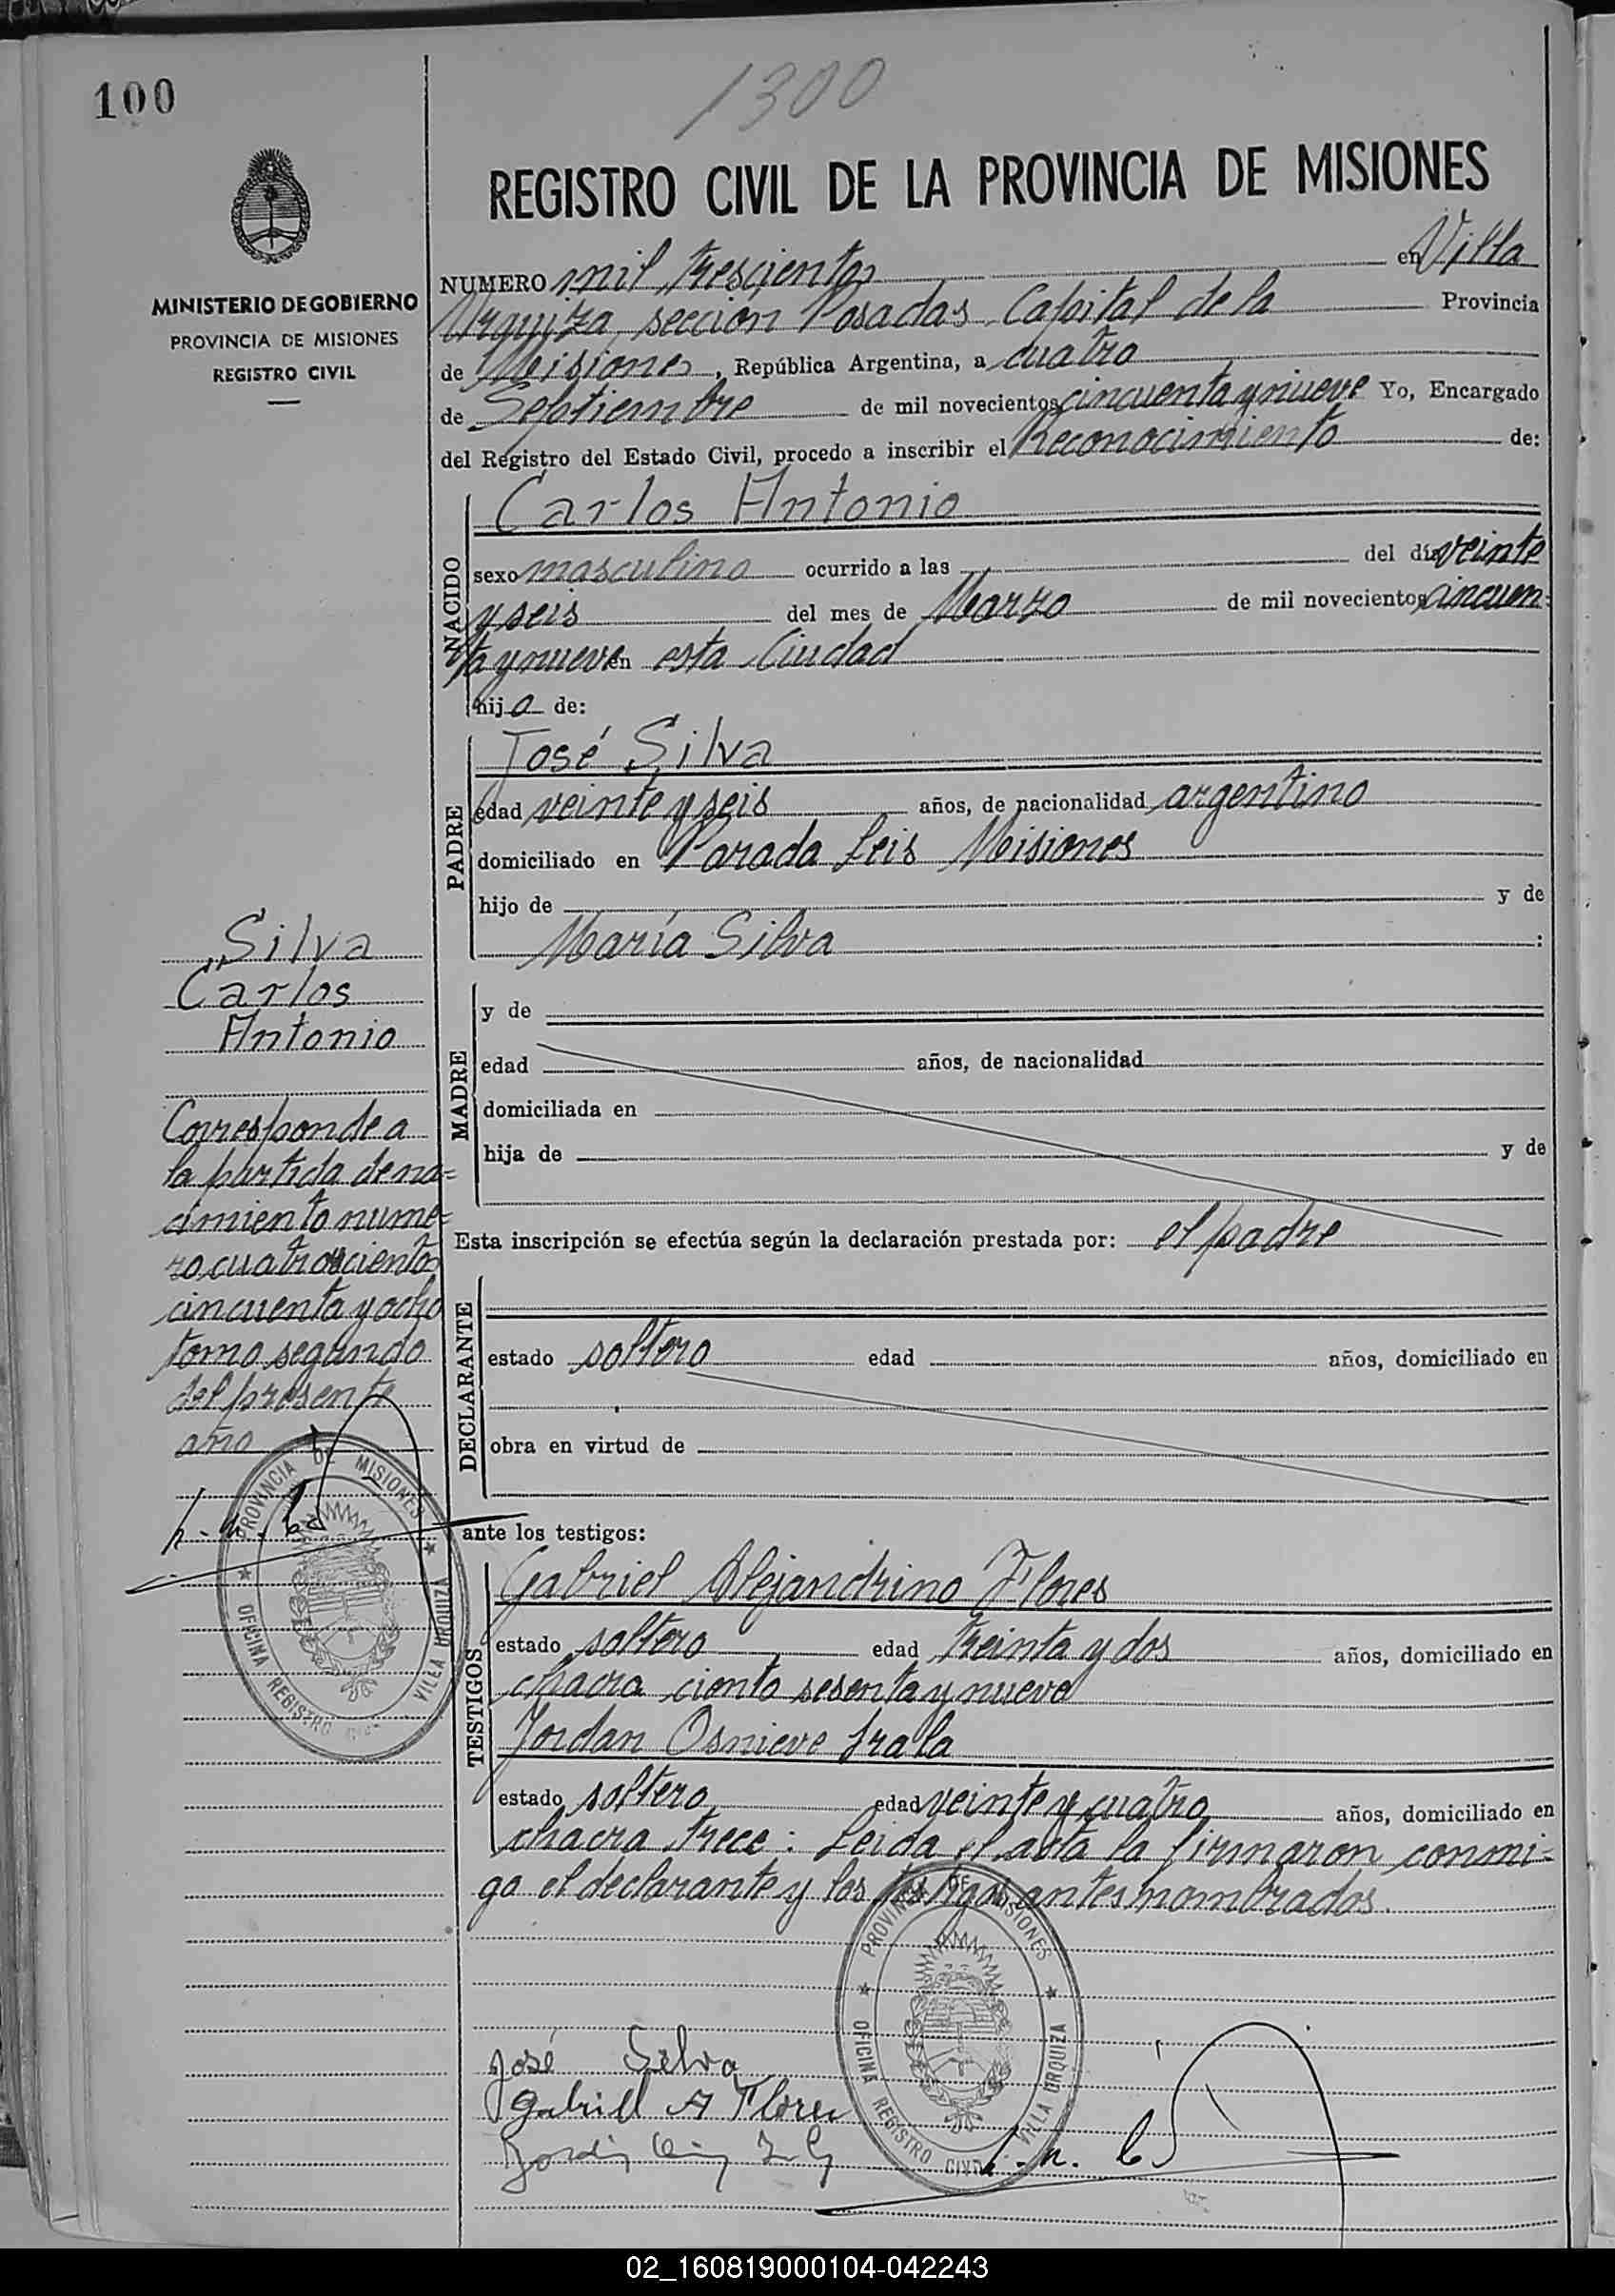 100
1300
REGISTRO CIVIL DE LA PROVINCIA DE MISIONES
MINISTERIO DE GOBIERNO
PROVINCIA DE MISIONES
REGISTRO CIVIL
NUMERO mil trescientos en Villa
Urquiza, sección Posadas Capital de la Provincia
de Misiones, República Argentina, a cuatro
de Septiembre de mil novecientos cincuenta y nueve Yo, Encargado
del Registro del Estado Civil, procedo a inscribir el Reconocimiento de:
NACIDO
Carlos Antonio
sexo masculino ocurrido a las del día veinte
y seis del mes de Marzo de mil novecientos cincuen=
ta y nueve en esta Ciudad
hijo de:
PADRE
José Silva
edad veinte y seis años, de nacionalidad argentino
domiciliado en Parada Leis Misiones
hijo de y de
María Silva :
MADRE
y de
edad años, de nacionalidad
domiciliada en
hija de y de
Esta inscripción se efectúa según la declaración prestada por: el padre
DECLARANTE
estado soltero edad años, domiciliado en
obra en virtud de
ante los testigos:
TESTIGOS
Gabriel Alejandrino Flores
estado soltero edad treinta y dos años, domiciliado en
chacra ciento sesenta y nueve
Jordan Osnieve Irala
estado soltero edad veinte y cuatro años, domiciliado en
chacra trece: Leida el acta la firmaron conmi=
go el declarante y los testigos antes nombrados.
José Silva
Gabriel A Flores
Silva
Carlos
Antonio
Corresponde a
la partida de na=
cimiento nume=
ro cuatrocientos
cincuenta y ocho
tomo segundo
del presente
año
PROVINCIA DE MISIONES
OFICINA REGISTRO CIVIL VILLA URQUIZA
PROVINCIA DE MISIONES
OFICINA REGISTRO CIVIL VILLA URQUIZA
02_160819000104-042243